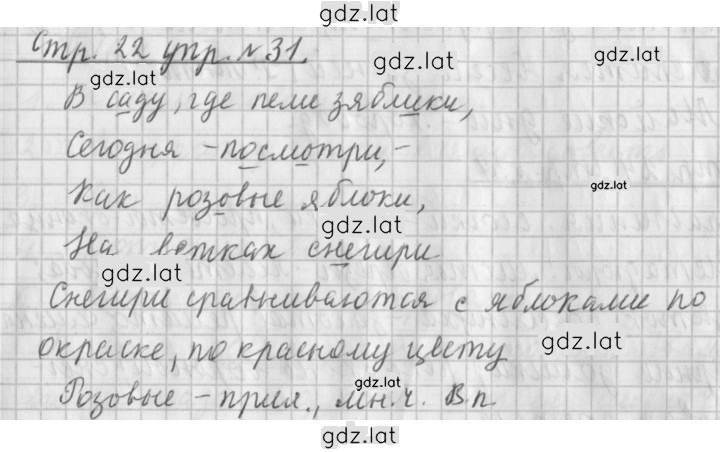 gdz.lat
Стр. 22 упр. №31.
gdz.lat
gdz.lat
В саду, где пели зяблики,
Сегодня - посмотри, -
gdz.lat
Как розовые яблоки,
gdz.lat
На ветках снегири
gdz.lat
Снегири сравниваются с яблоками по
окраске, по красному цвету
gdz.lat
gdz.lat
Розовые - прил., мн.ч. В п
gdz.lat